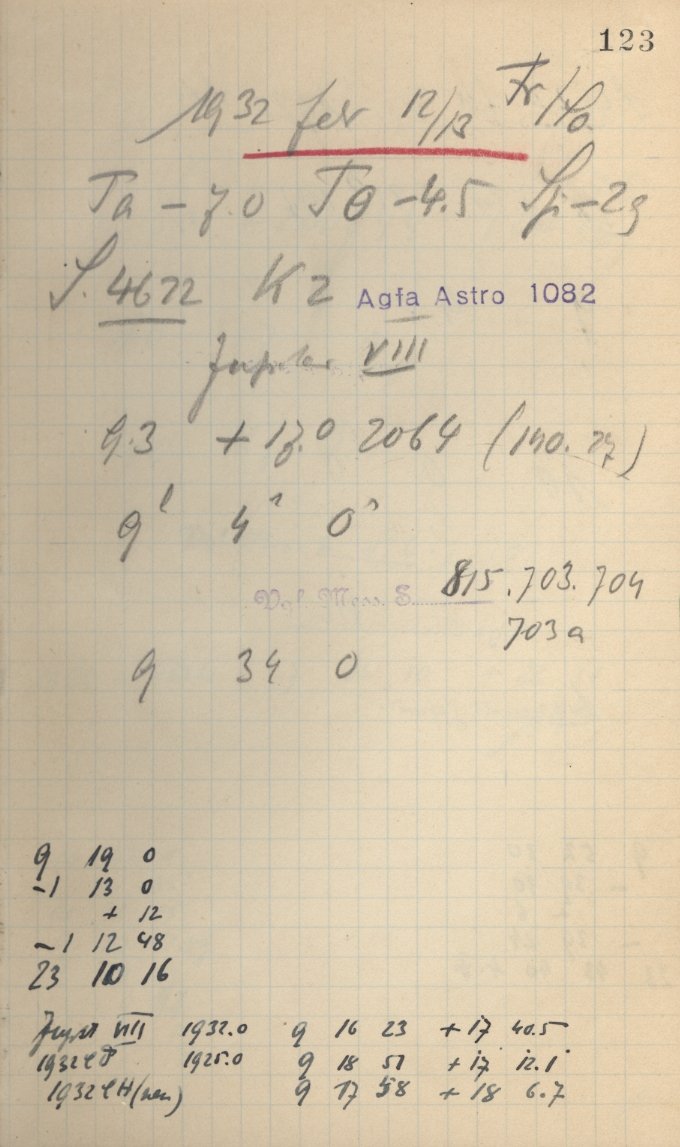 123
1932 febr 12/13 Fr/So
Ta -7.0 Te -4.5 Sp -2
S. 4622 K 2 Agfa Astro 1082
Jupiter VIII
9.3 +17.0 2064 (140. 27)
9 4 0
Vgl. Mess. S. 815. 703. 704
703a
9 34 0
9 19 0
-1 13 0
+ 12
-1 12 48
23 10 16
Jupit VIII 1932.0 9 16 23 +17 40.5
1932 1925.0 9 18 51 +17 12.1
1932 (neu) 9 17 58 +18 6.7